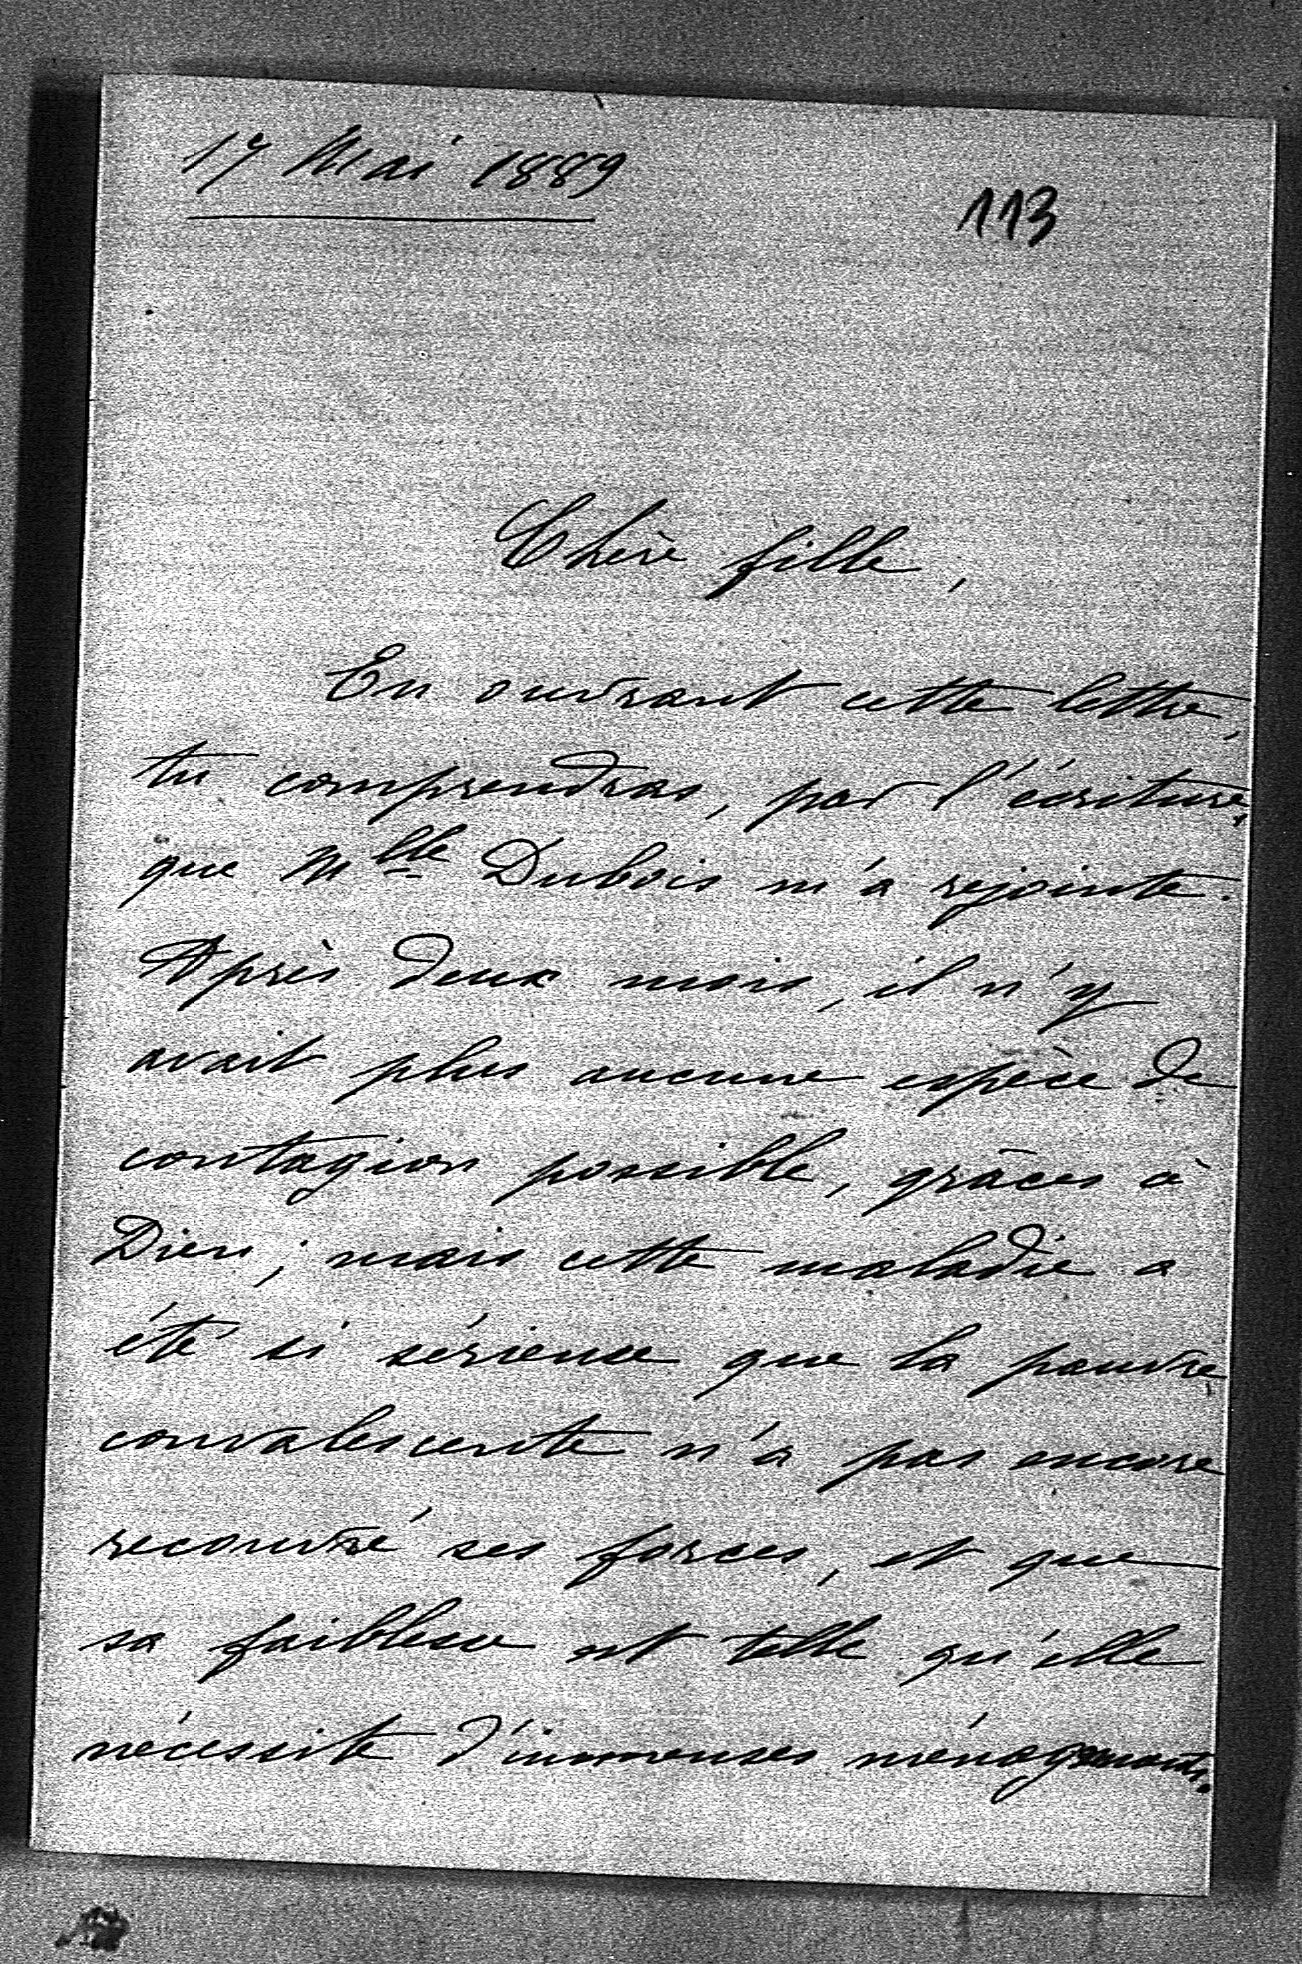 17 Mai 1889
113
Chère fille,
En ouvrant cette lettre,
tu comprendras, par l'écriture,
que Mlle Dubois m'a rejointe.
Après deux mois, il n'y
avait plus aucune espèce de
contagion possible, grâces à
Dieu; mais cette maladie a
été si sérieuse que la pauvre
convalescente n'a pas encore
recouvré ses forces, et que
sa faiblesse est telle qu'elle
nécessite d'immenses ménagements.